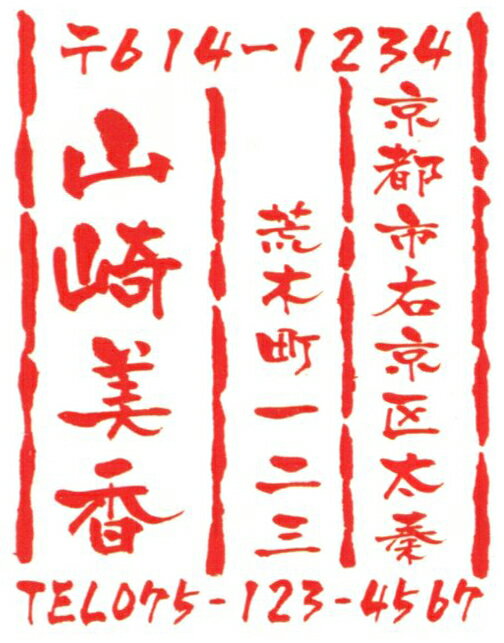 〒614-1234
京都市右京区太秦
荒木町一二三
山崎美香
TEL075-123-4567